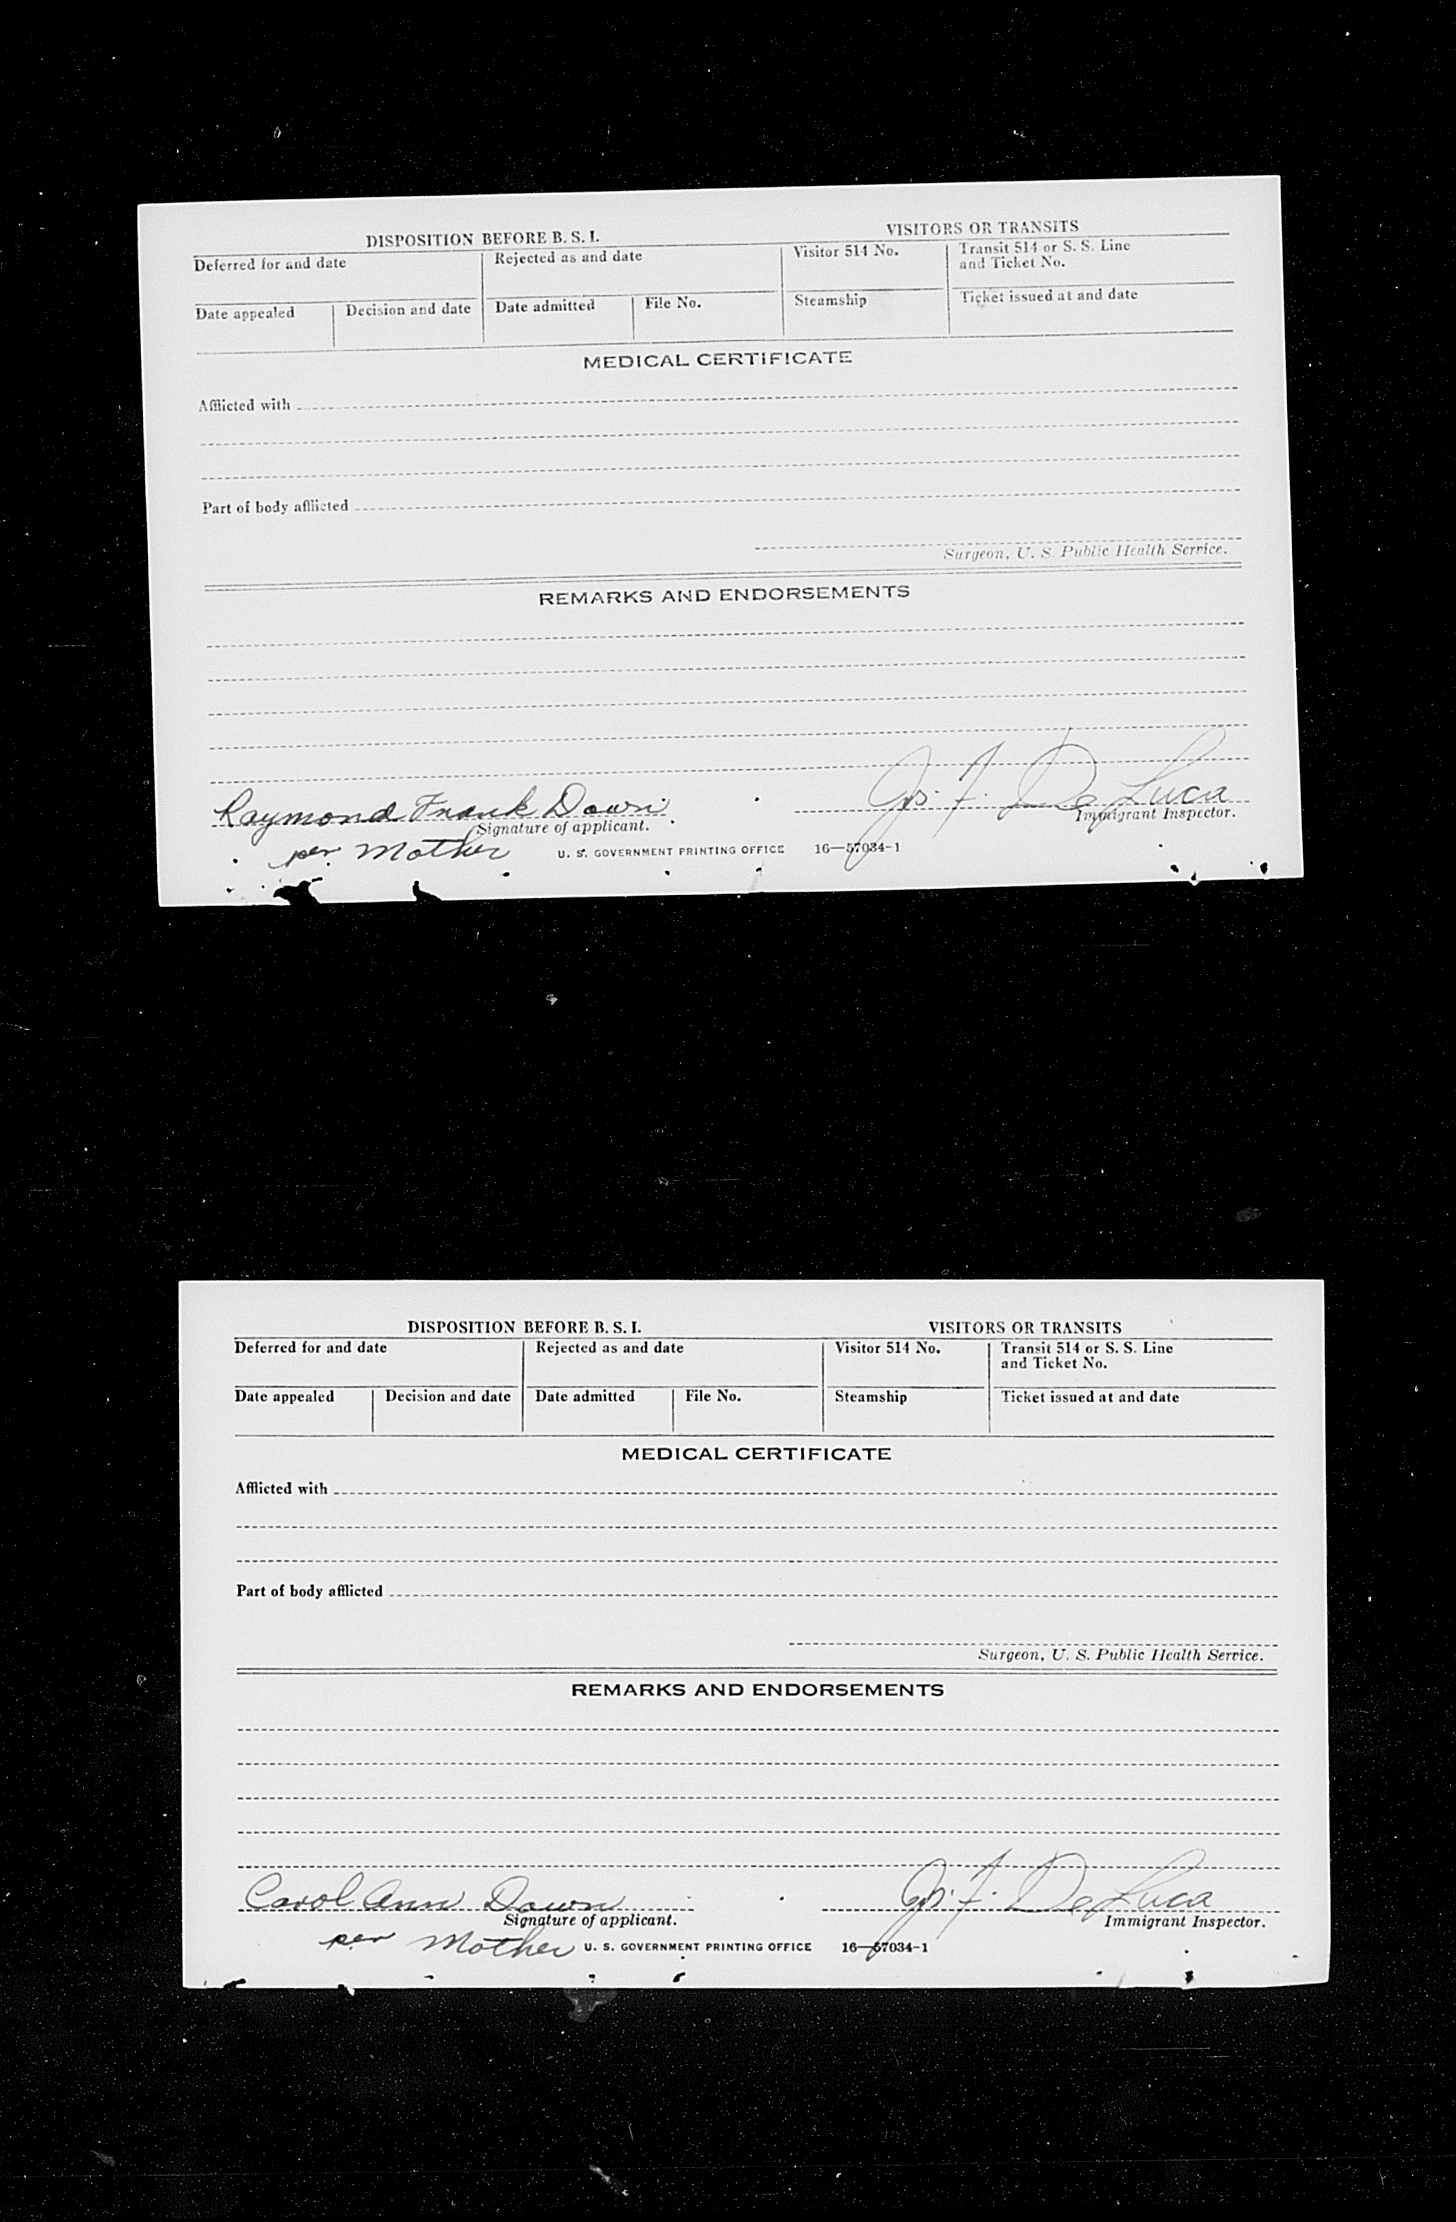 DISPOSITION BEFORE B. S. I.
VISITORS OR TRANSITS
Deferred for and date
Rejected as and date
Visitor 514 No.
Transit 514 or S. S. Line
and Ticket No.
Date appealed
Decision and date
Date admitted
File No.
Steamship
Ticket issued at and date
MEDICAL CERTIFICATE
Afflicted with
Part of body afflicted
Surgeon, U. S. Public Health Service.
REMARKS AND ENDORSEMENTS
Raymond Frank Dawn
Jos. F. De Luca
Signature of applicant.
Immigrant Inspector.
per Mother
U. S. GOVERNMENT PRINTING OFFICE 16—57034-1
DISPOSITION BEFORE B. S. I.
VISITORS OR TRANSITS
Deferred for and date
Rejected as and date
Visitor 514 No.
Transit 514 or S. S. Line
and Ticket No.
Date appealed
Decision and date
Date admitted
File No.
Steamship
Ticket issued at and date
MEDICAL CERTIFICATE
Afflicted with
Part of body afflicted
Surgeon, U. S. Public Health Service.
REMARKS AND ENDORSEMENTS
Carol Ann Dawn
Jos. F. De Luca
Signature of applicant.
Immigrant Inspector.
per Mother
U. S. GOVERNMENT PRINTING OFFICE 16—57034-1